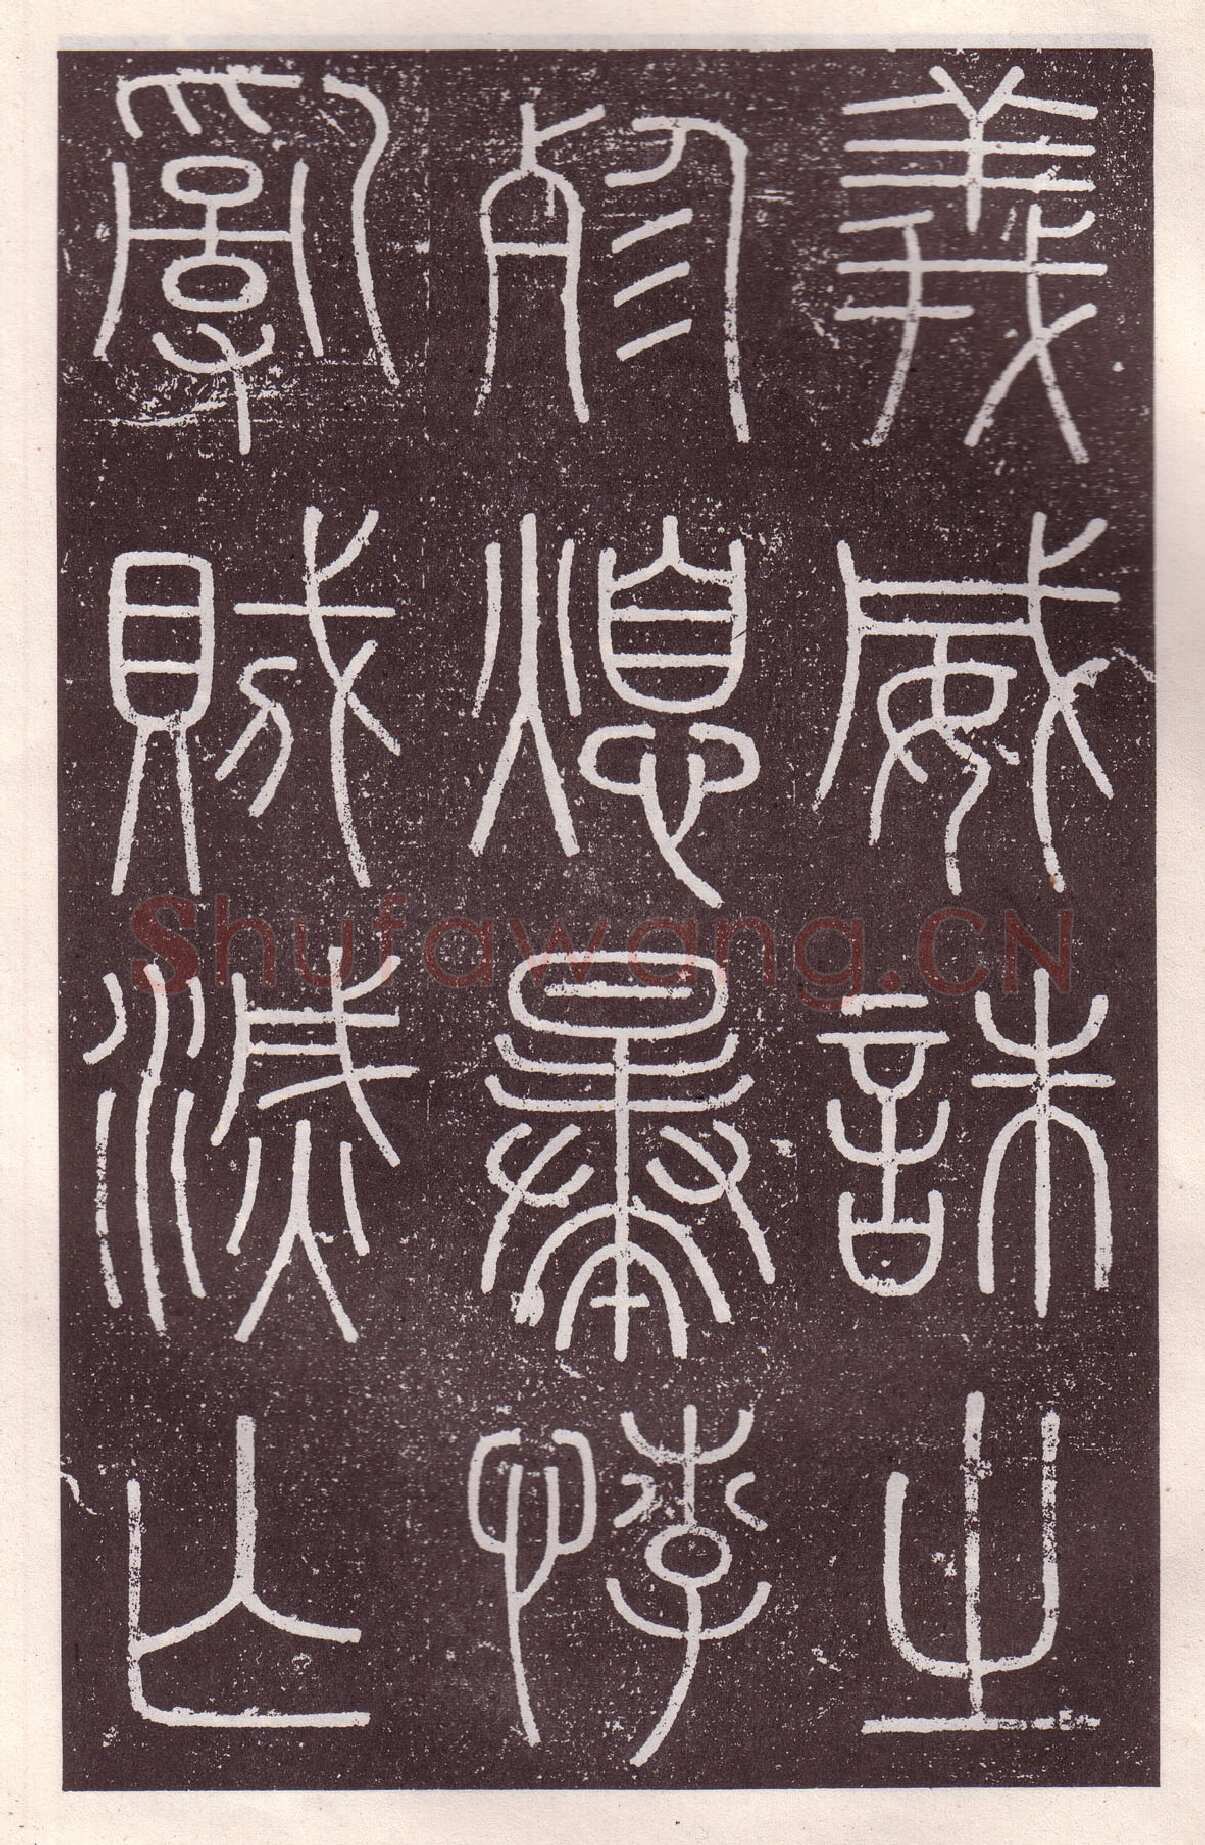 義威誅之
殄熄㬥悖
亂賊滅亡
Shufawang.CN